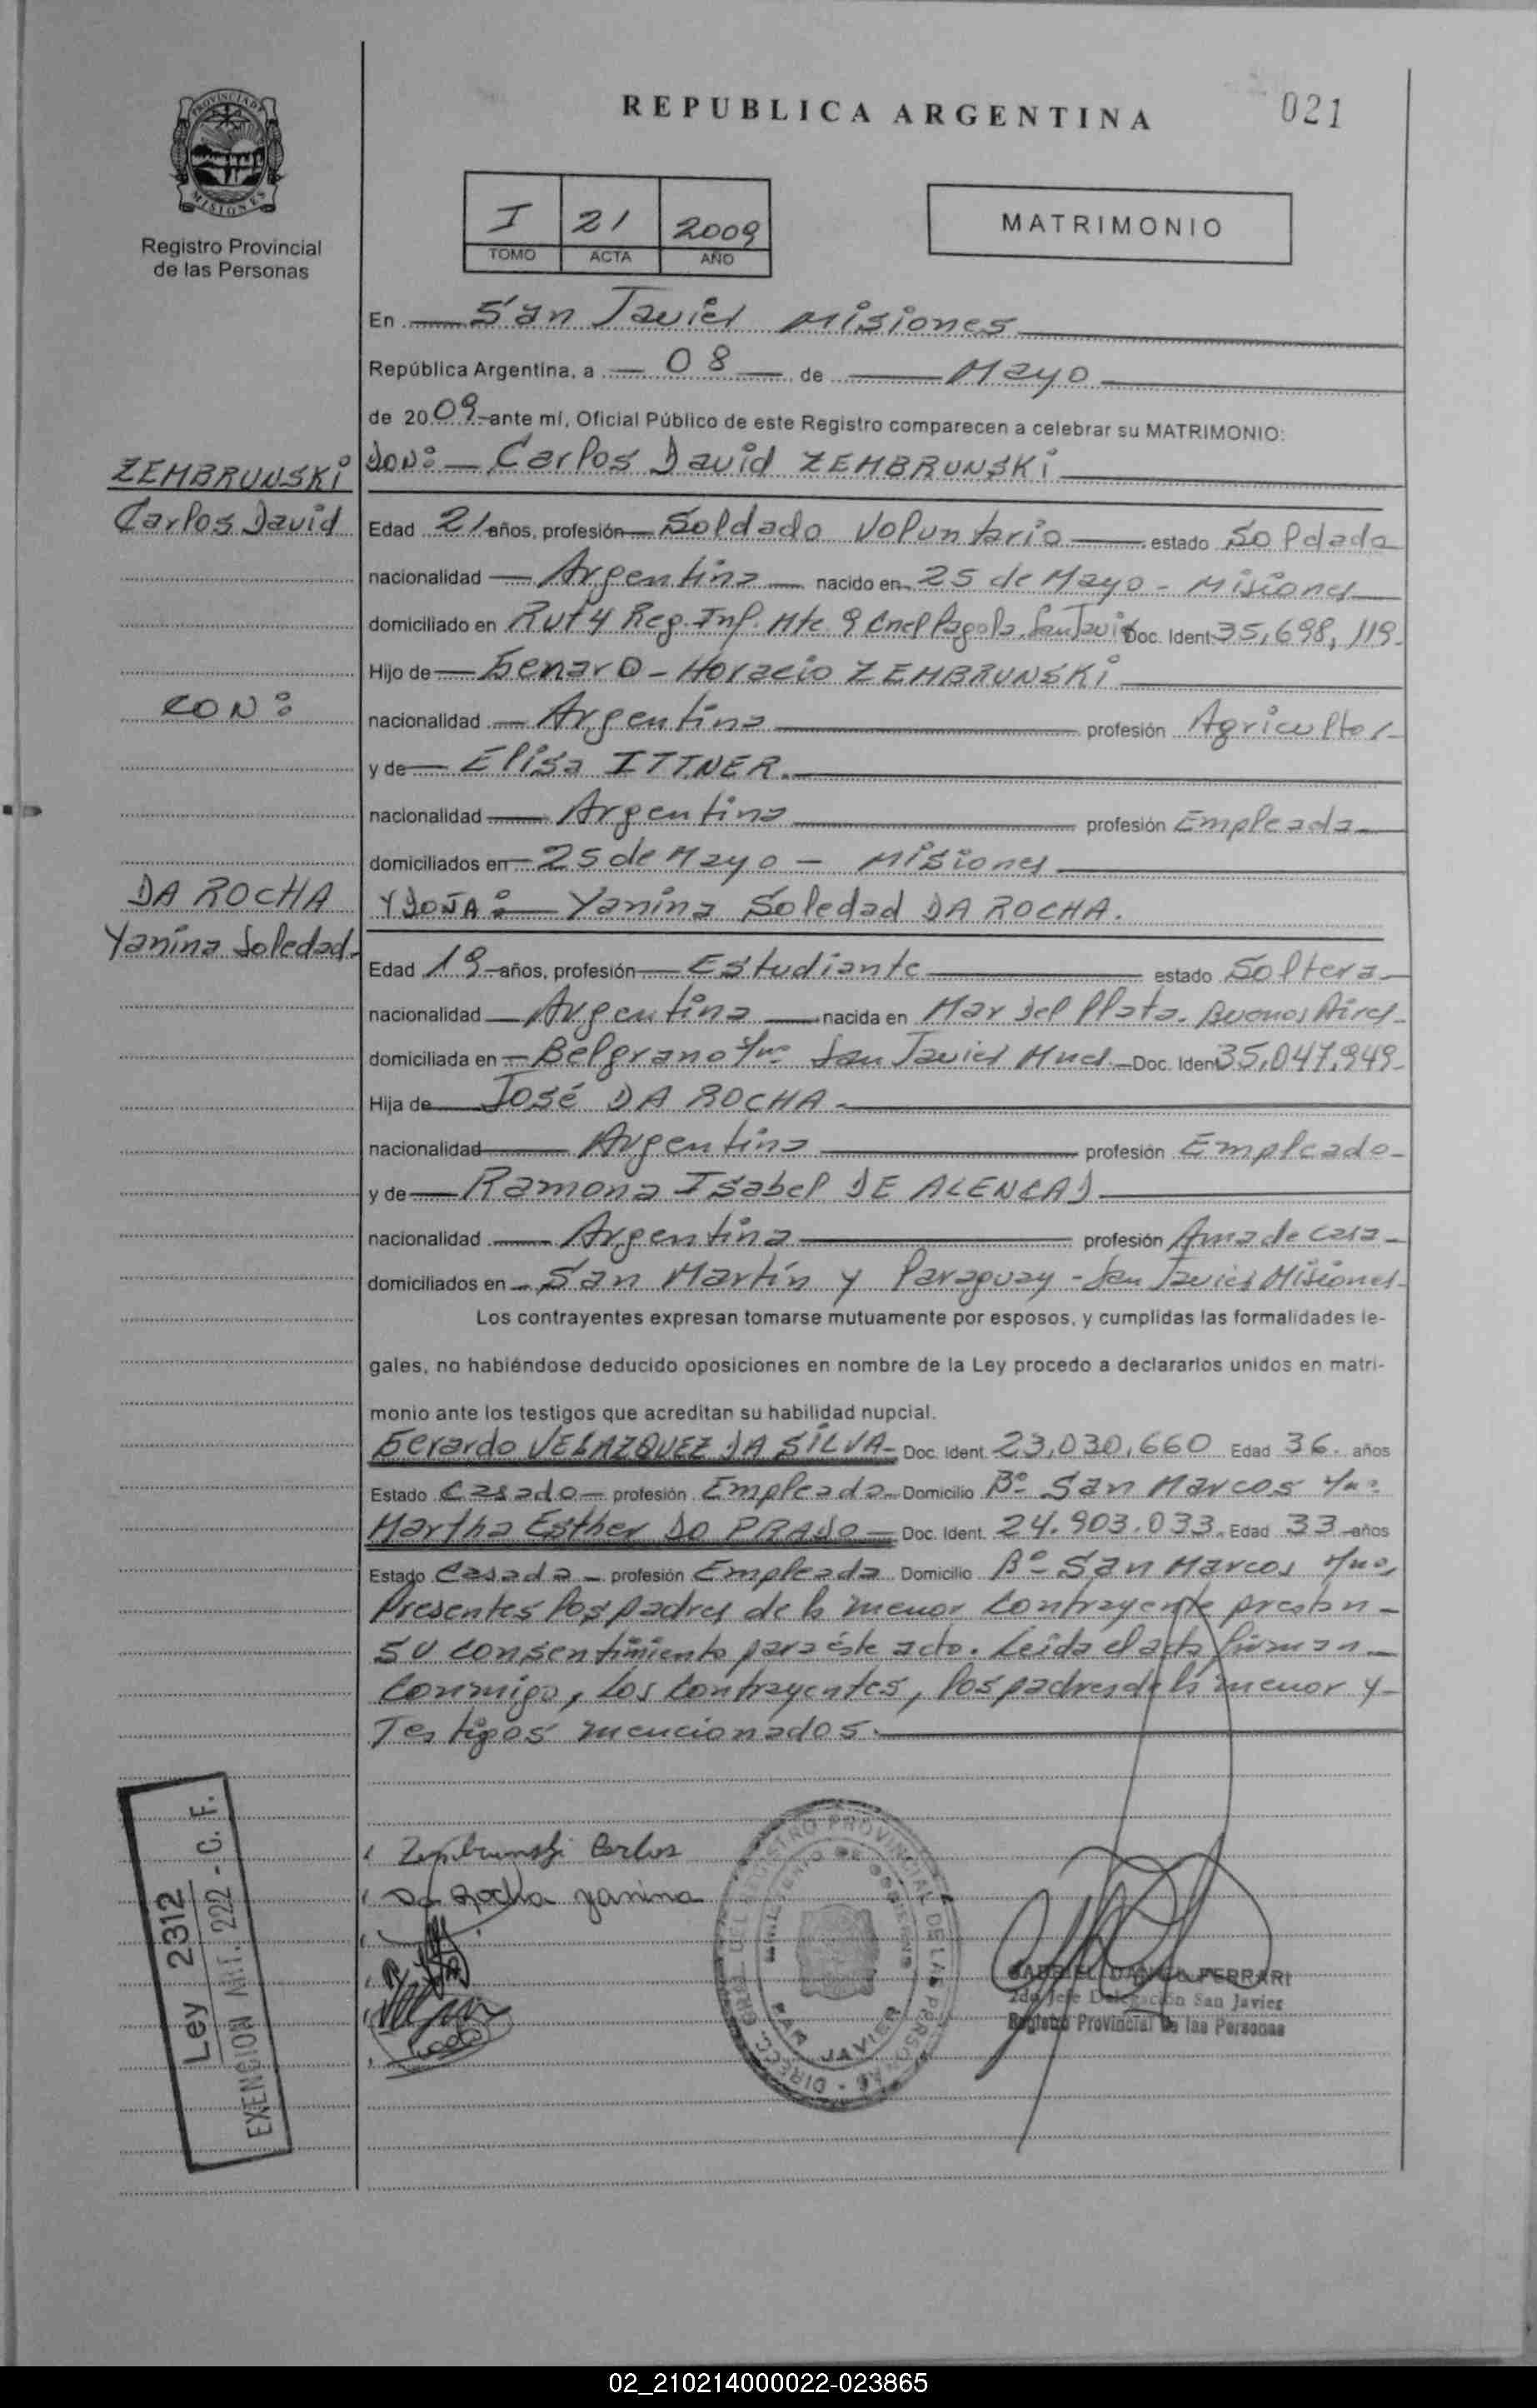 REPUBLICA ARGENTINA
021
PROVINCIA D
MISIONES
Registro Provincial
de las Personas
I 21 2009
TOMO ACTA AÑO
MATRIMONIO
En San Javier Misiones
República Argentina, a 08 de Mayo
de 2009 ante mí, Oficial Público de este Registro comparecen a celebrar su MATRIMONIO:
ZEMBRUNSKi
DON: Carlos David ZEMBRUNSKi
Carlos David
Edad 21 años, profesión Soldado Voluntario estado Soldado
nacionalidad Argentina nacido en 25 de Mayo - Misiones
domiciliado en Rut 4 Reg. Inf. Mte 9 Cnel Pagola, San Javier Doc. Ident 35,698,119.
Hijo de Genaro - Horacio ZEMBRUNSKi
CON:
nacionalidad Argentina profesión Agricultor
y de Elisa ITTNER.
nacionalidad Argentina profesión Empleada
domiciliados en 25 de Mayo - Misiones
DA ROCHA
Y DOÑA: Yanina Soledad DA ROCHA.
Yanina Soledad.
Edad 19 años, profesión Estudiante estado Soltera
nacionalidad Argentina nacida en Mar del Plata. Buenos Aires
domiciliada en Belgrano San Javier Mnes. Doc. Ident 35,047,949.
Hija de José DA ROCHA
nacionalidad Argentina profesión Empleado
y de Ramona Isabel DE ALENCA
nacionalidad Argentina profesión Ama de casa
domiciliados en San Martín y Paraguay - San Javier Misiones
Los contrayentes expresan tomarse mutuamente por esposos, y cumplidas las formalidades le-
gales, no habiéndose deducido oposiciones en nombre de la Ley procedo a declararlos unidos en matri-
monio ante los testigos que acreditan su habilidad nupcial.
Gerardo VELAZQUEZ DA SILVA Doc. Ident. 23,030,660 Edad 36. años
Estado Casado profesión Empleado Domicilio Bº San Marcos
Martha Esther DO PRADO Doc. Ident. 24.903.033. Edad 33 años
Estado Casada profesión Empleada Domicilio Bº San Marcos
Presentes los padres de la menor contrayente prestan
su consentimiento para éste acto. Leída el acta firman
Conmigo, los Contrayentes, los padres de la menor y
Testigos mencionados.
Ley 2312
EXENCION ART. 222 - C. F.
Zembrunski Carlos
Da Rocha Yanina
DIRECC. GRAL. DEL REGISTRO PROVINCIAL DE LAS PERSONAS
MINISTERIO DE GOBIERNO
SAN JAVIER
GABRIEL DANIEL FERRARI
2do Jefe Delegación San Javier
Registro Provincial de las Personas
02_210214000022-023865